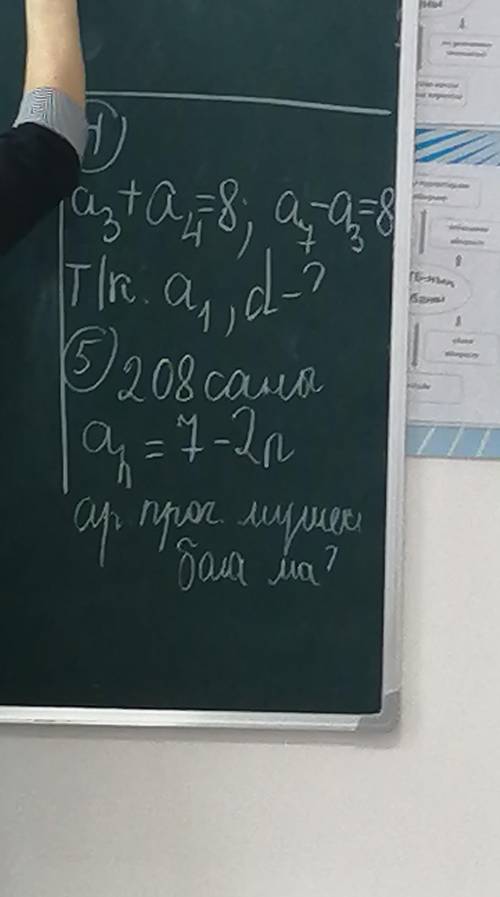 4
a₃+a₄=8; a₇-a₃=8
Т/к. a₁, d-?
5 208 саны
aₙ=7-2n
ар. прог. мүшесі
бола ма?